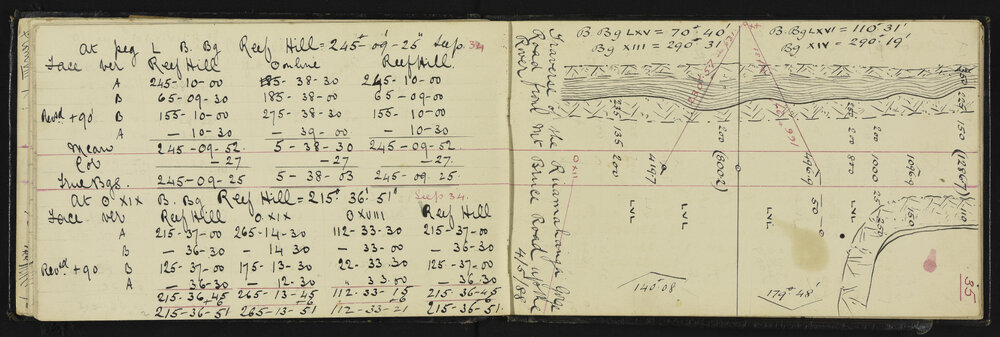 At peg L B. Bg Reef Hill = 245°-09'-25" See p. 34
Face ver Reef Hill on line Reef Hill.
A 245-10-00 185-38-30 245-10-00
B 65-09-30 185-38-00 65-09-00
Revsd +90 B 155-10-00 275-38-30 155-10-00
A -10-30 -39-00 -10-30
Mean 245-09-52. 5-38-30 245-09-52
Cor -27 -27 -27.
True Bgs. 245-09-25 5-38-03 245-09-25.
At O XIX B. Bg Reef Hill = 215° 36' 51" See p 34.
Face ver Reef Hill O XIX O XVIII Reef Hill
A 215-37-00 265-14-30 112-33-30 215-37-00
B -36-30 -14 30 -33-00 -36-30
Revsd +90 B 125-37-00 175-13-30 22-33.30 125-37-00
A -36-30 -12.30 " 33.00 -36.30
215.36.45 265-13-45 112.33-15 215-36-45
+6 6 6 6
215-36-51 265-13-51 112-33-21 215-36-51.
Traverse of the Ruamahanga
Road from Mt Bruce Road up the
River 4/5/88
B Bg LXV = 70° 40'
Bg XIII = 290° 31'
B. Bg LXVI = 110° 31'
Bg XIV = 290° 19'
O XII
235 135 200
LVL
4197
(8002)
LVL
200
496.9
50
LVL
200 200 800
1000
25 250
1096.9
150
350 225 150
(12867)
110
140° 08
179° 48'
35